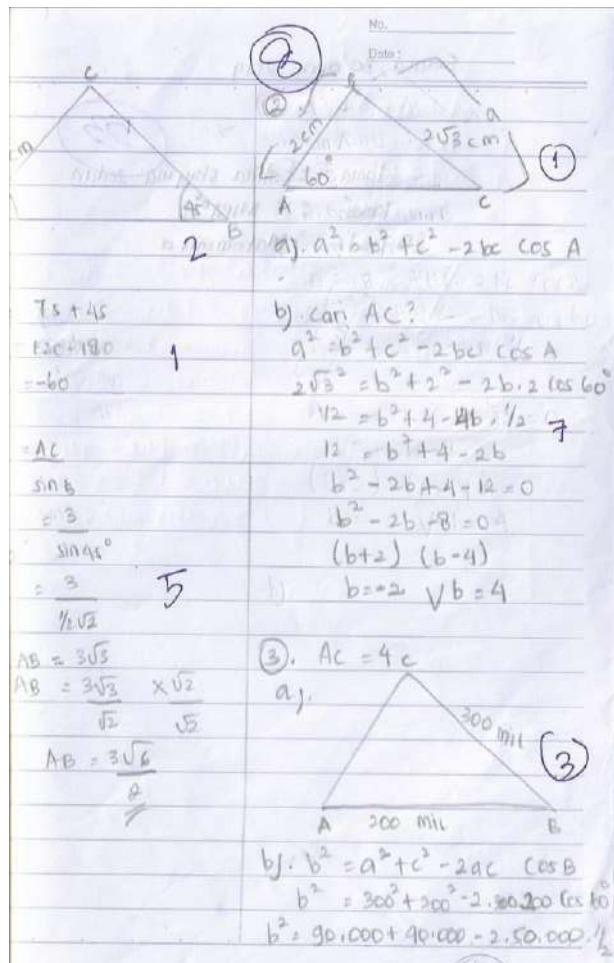 No.
Date:
8
C
cm
45°
B
2
75 + 45
120 - 180
= -60
1
= AC
sin B
= 3
sin 45°
= 3
1/2 √2
5
AB = 3√3
AB = 3√3 × √2
√2 √2
AB = 3√6
2
②
B
a
2 cm
2√3 cm
60°
A
C
1
a). a² = b² + c² - 2bc cos A
b). cari AC?
a² = b² + c² - 2bc cos A
2√3² = b² + 2² - 2b.2 cos 60°
12 = b² + 4 - 4b . 1/2
7
12 = b² + 4 - 2b
b² - 2b + 4 - 12 = 0
b² - 2b - 8 = 0
(b+2) (b-4)
b = -2 ∨ b = 4
③. AC = 4
a).
C
300 mil
3
A
200 mil
B
b). b² = a² + c² - 2ac cos B
b² = 300² + 200² - 2.300.200 cos 60°
b² = 90.000 + 40.000 - 2.50.000.1/2